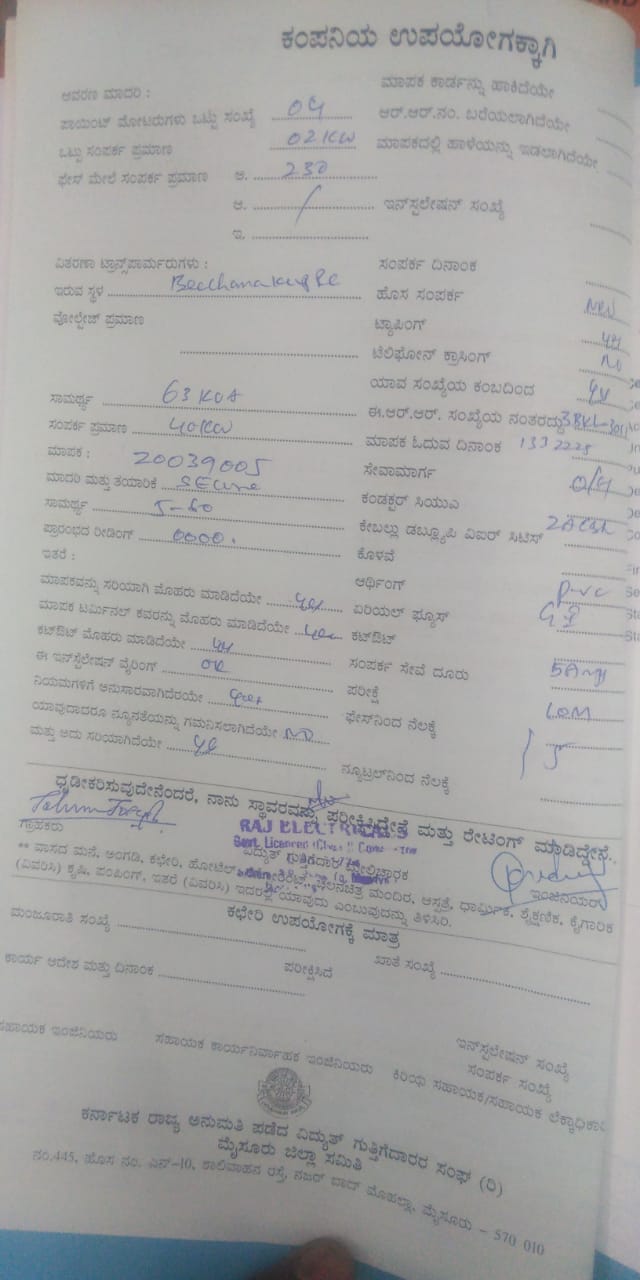 ಕಂಪನಿಯ ಉಪಯೋಗಕ್ಕಾಗಿ
ಆವರಣ ಮಾದರಿ :
ಮಾಪಕ ಕಾರ್ಡನ್ನು ಹಾಕಿದೆಯೇ
ಪಾಯಿಂಟ್ ಮೋಟರುಗಳು ಒಟ್ಟು ಸಂಖ್ಯೆ 04
ಆರ್.ಆರ್.ನಂ. ಬರೆಯಲಾಗಿದೆಯೇ
ಒಟ್ಟು ಸಂಪರ್ಕ ಪ್ರಮಾಣ 02KW
ಮಾಪಕದಲ್ಲಿ ಹಾಳೆಯನ್ನು ಇಡಲಾಗಿದೆಯೇ
ಫೇಸ್ ಮೇಲೆ ಸಂಪರ್ಕ ಪ್ರಮಾಣ ಅ. 230
ಆ.
ಇನ್‌ಸ್ಟಲೇಷನ್ ಸಂಖ್ಯೆ
ಇ.
ವಿತರಣಾ ಟ್ರಾನ್ಸ್‌ಫಾರ್ಮರುಗಳು :
ಸಂಪರ್ಕ ದಿನಾಂಕ
ಇರುವ ಸ್ಥಳ
ಹೊಸ ಸಂಪರ್ಕ New
ವೋಲ್ಟೇಜ್ ಪ್ರಮಾಣ
ಟ್ಯಾಪಿಂಗ್
ಟೆಲಿಫೋನ್ ಕ್ರಾಸಿಂಗ್ No
ಯಾವ ಸಂಖ್ಯೆಯ ಕಂಬದಿಂದ
ಸಾಮರ್ಥ್ಯ 63 KVA
ಈ.ಆರ್.ಆರ್. ಸಂಖ್ಯೆಯ ನಂತರದ್ದು
ಸಂಪರ್ಕ ಪ್ರಮಾಣ 40KW
ಮಾಪಕ ಓದುವ ದಿನಾಂಕ
ಮಾಪಕ : 20039005
ಸೇವಾಮಾರ್ಗ O/H
ಮಾದರಿ ಮತ್ತು ತಯಾರಿಕೆ Secure
ಕಂಡಕ್ಟರ್ ಸಿಯುಎ
ಸಾಮರ್ಥ್ಯ 5-60
ಕೇಬಲ್ಲು ಡಬ್ಲ್ಯೂಪಿ ವಿಐರ್ ಸಿಟಿಸ್
ಪ್ರಾರಂಭದ ರೀಡಿಂಗ್ 0000.
ಕೊಳವೆ
ಇತರೆ :
ಆರ್ಥಿಂಗ್
ಮಾಪಕವನ್ನು ಸರಿಯಾಗಿ ಮೊಹರು ಮಾಡಿದೆಯೇ yes
ಏರಿಯಲ್ ಫ್ಯೂಸ್
ಮಾಪಕ ಟರ್ಮಿನಲ್ ಕವರನ್ನು ಮೊಹರು ಮಾಡಿದೆಯೇ yes
ಕಟ್‌ಔಟ್
ಕಟ್‌ಔಟ್ ಮೊಹರು ಮಾಡಿದೆಯೇ
ಸಂಪರ್ಕ ಸೇವೆ ದೂರು
ಈ ಇನ್‌ಸ್ಟಲೇಷನ್ ವೈರಿಂಗ್ OK
ಪರೀಕ್ಷೆ
ನಿಯಮಗಳಿಗೆ ಅನುಸಾರವಾಗಿದೆಯೇ yes
ಫೇಸ್‌ನಿಂದ ನೆಲಕ್ಕೆ
ಯಾವುದಾದರೂ ನ್ಯೂನತೆಯನ್ನು ಗಮನಿಸಲಾಗಿದೆಯೇ NO
ಮತ್ತು ಅದು ಸರಿಯಾಗಿದೆಯೇ
ನ್ಯೂಟ್ರಲ್‌ನಿಂದ ನೆಲಕ್ಕೆ
ಧೃಡೀಕರಿಸುವುದೇನೆಂದರೆ, ನಾನು ಸ್ಥಾವರವನ್ನು ಪರೀಕ್ಷಿಸಿದ್ದೇನೆ ಮತ್ತು ರೇಟಿಂಗ್ ಮಾಡಿದ್ದೇನೆ.
RAJ ELECTRICAL
ಗ್ರಾಹಕರು
ವಿದ್ಯುತ್ ಗುತ್ತಿಗೆದಾರ/ಮೇಲ್ವಿಚಾರಕ
ಇಂಜಿನಿಯರ್
** ವಾಸದ ಮನೆ, ಅಂಗಡಿ, ಕಛೇರಿ, ಹೋಟೆಲ್ ಚಲನಚಿತ್ರ ಮಂದಿರ, ಆಸ್ಪತ್ರೆ, ಧಾರ್ಮಿಕ, ಶೈಕ್ಷಣಿಕ, ಕೈಗಾರಿಕ
(ವಿವರಿಸಿ) ಕೃಷಿ, ಪಂಪಿಂಗ್, ಇತರೆ (ವಿವರಿಸಿ) ಇದರಲ್ಲಿ ಯಾವುದು ಎಂಬುವುದನ್ನು ತಿಳಿಸಿರಿ.
ಕಛೇರಿ ಉಪಯೋಗಕ್ಕೆ ಮಾತ್ರ
ಮಂಜೂರಾತಿ ಸಂಖ್ಯೆ
ಖಾತೆ ಸಂಖ್ಯೆ
ಕಾರ್ಯ ಆದೇಶ ಮತ್ತು ದಿನಾಂಕ
ಪರೀಕ್ಷಿಸಿದೆ
ಇನ್‌ಸ್ಟಲೇಷನ್ ಸಂಖ್ಯೆ
ಸಂಪರ್ಕ ಸಂಖ್ಯೆ
ಸಹಾಯಕ ಇಂಜಿನಿಯರು ಸಹಾಯಕ ಕಾರ್ಯನಿರ್ವಾಹಕ ಇಂಜಿನಿಯರು ಕಿರಿಯ ಸಹಾಯಕ/ಸಹಾಯಕ ಲೆಕ್ಕಾಧಿಕಾರಿ
ಕರ್ನಾಟಕ ರಾಜ್ಯ ಅನುಮತಿ ಪಡೆದ ವಿದ್ಯುತ್ ಗುತ್ತಿಗೆದಾರರ ಸಂಘ (ರಿ)
ಮೈಸೂರು ಜಿಲ್ಲಾ ಸಮಿತಿ
ನಂ.445, ಹೊಸ ನಂ. ಎನ್-10, ಶಾಲಿವಾಹನ ರಸ್ತೆ, ನಜರ್ ಬಾದ್ ಮೊಹಲ್ಲಾ, ಮೈಸೂರು - 570 010